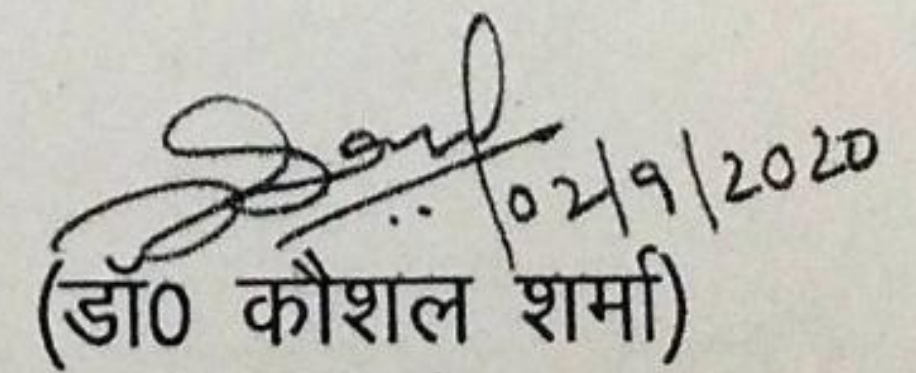 02/9/2020
(डॉ0 कौशल शर्मा)